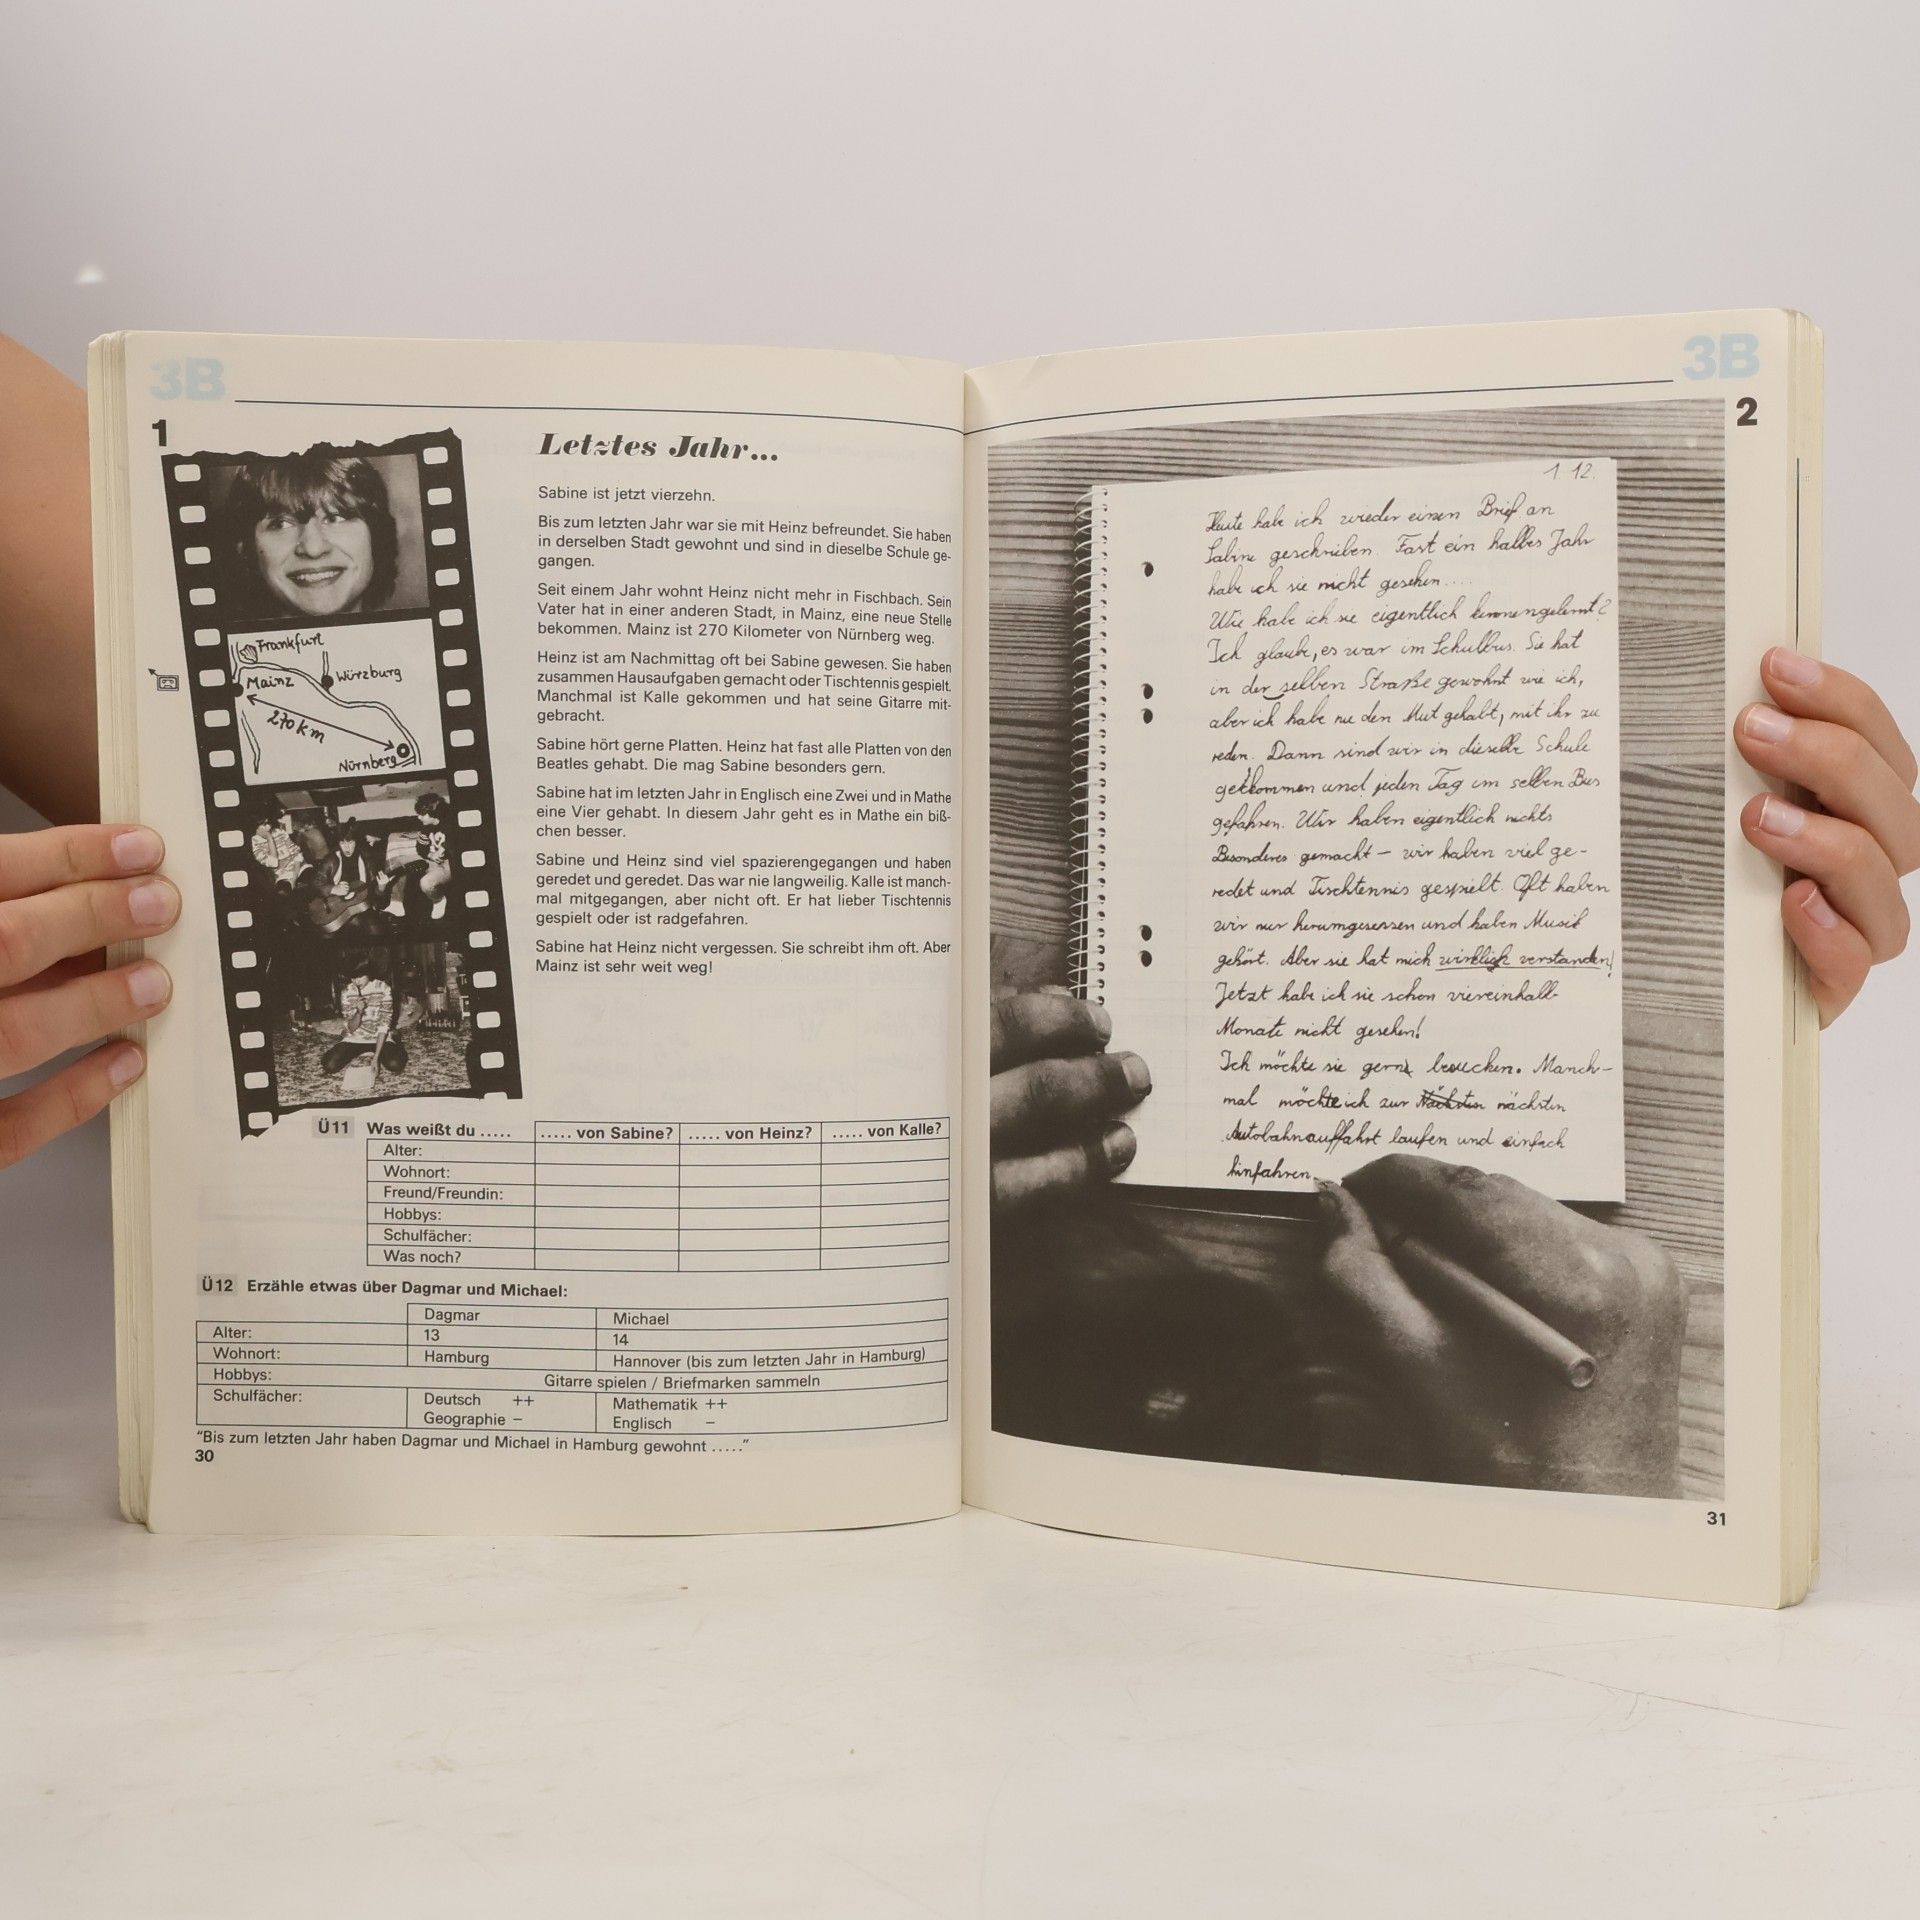 3B
1
Letztes Jahr...
Sabine ist jetzt vierzehn.
Bis zum letzten Jahr war sie mit Heinz befreundet. Sie haben
in derselben Stadt gewohnt und sind in dieselbe Schule ge-
gangen.
Seit einem Jahr wohnt Heinz nicht mehr in Fischbach. Sein
Vater hat in einer anderen Stadt, in Mainz, eine neue Stelle
bekommen. Mainz ist 270 Kilometer von Nürnberg weg.
Heinz ist am Nachmittag oft bei Sabine gewesen. Sie haben
zusammen Hausaufgaben gemacht oder Tischtennis gespielt.
Manchmal ist Kalle gekommen und hat seine Gitarre mit-
gebracht.
Sabine hört gerne Platten. Heinz hat fast alle Platten von den
Beatles gehabt. Die mag Sabine besonders gern.
Sabine hat im letzten Jahr in Englisch eine Zwei und in Mathe
eine Vier gehabt. In diesem Jahr geht es in Mathe ein biß-
chen besser.
Sabine und Heinz sind viel spazierengegangen und haben
geredet und geredet. Das war nie langweilig. Kalle ist manch-
mal mitgegangen, aber nicht oft. Er hat lieber Tischtennis
gespielt oder ist radgefahren.
Sabine hat Heinz nicht vergessen. Sie schreibt ihm oft. Aber
Mainz ist sehr weit weg!
Frankfurt
Mainz
Würzburg
270 km
Nürnberg
Ü11 Was weißt du ..... ..... von Sabine? ..... von Heinz? ..... von Kalle?
Alter:
Wohnort:
Freund/Freundin:
Hobbys:
Schulfächer:
Was noch?
Ü12 Erzähle etwas über Dagmar und Michael:
Dagmar Michael
Alter: 13 14
Wohnort: Hamburg Hannover (bis zum letzten Jahr in Hamburg)
Hobbys: Gitarre spielen / Briefmarken sammeln
Schulfächer: Deutsch ++ Mathematik ++
Geographie – Englisch –
"Bis zum letzten Jahr haben Dagmar und Michael in Hamburg gewohnt ....."
30
3B
2
1 12.
Heute habe ich wieder einen Brief an
Sabine geschrieben. Fast ein halbes Jahr
habe ich sie nicht gesehen....
Wie habe ich sie eigentlich kennengelernt?
Ich glaube, es war im Schulbus. Sie hat
in der selben Straße gewohnt wie ich,
aber ich habe nie den Mut gehabt, mit ihr zu
reden. Dann sind wir in dieselbe Schule
gekommen und jeden Tag im selben Bus
gefahren. Wir haben eigentlich nichts
Besonderes gemacht – wir haben viel ge-
redet und Tischtennis gespielt. Oft haben
wir nur herumgesessen und haben Musik
gehört. Aber sie hat mich wirklich verstanden!
Jetzt habe ich sie schon viereinhalb
Monate nicht gesehen!
Ich möchte sie gern besuchen. Manch-
mal möchte ich zur Nächsten nächsten
Autobahnauffahrt laufen und einfach
hinfahren.
31